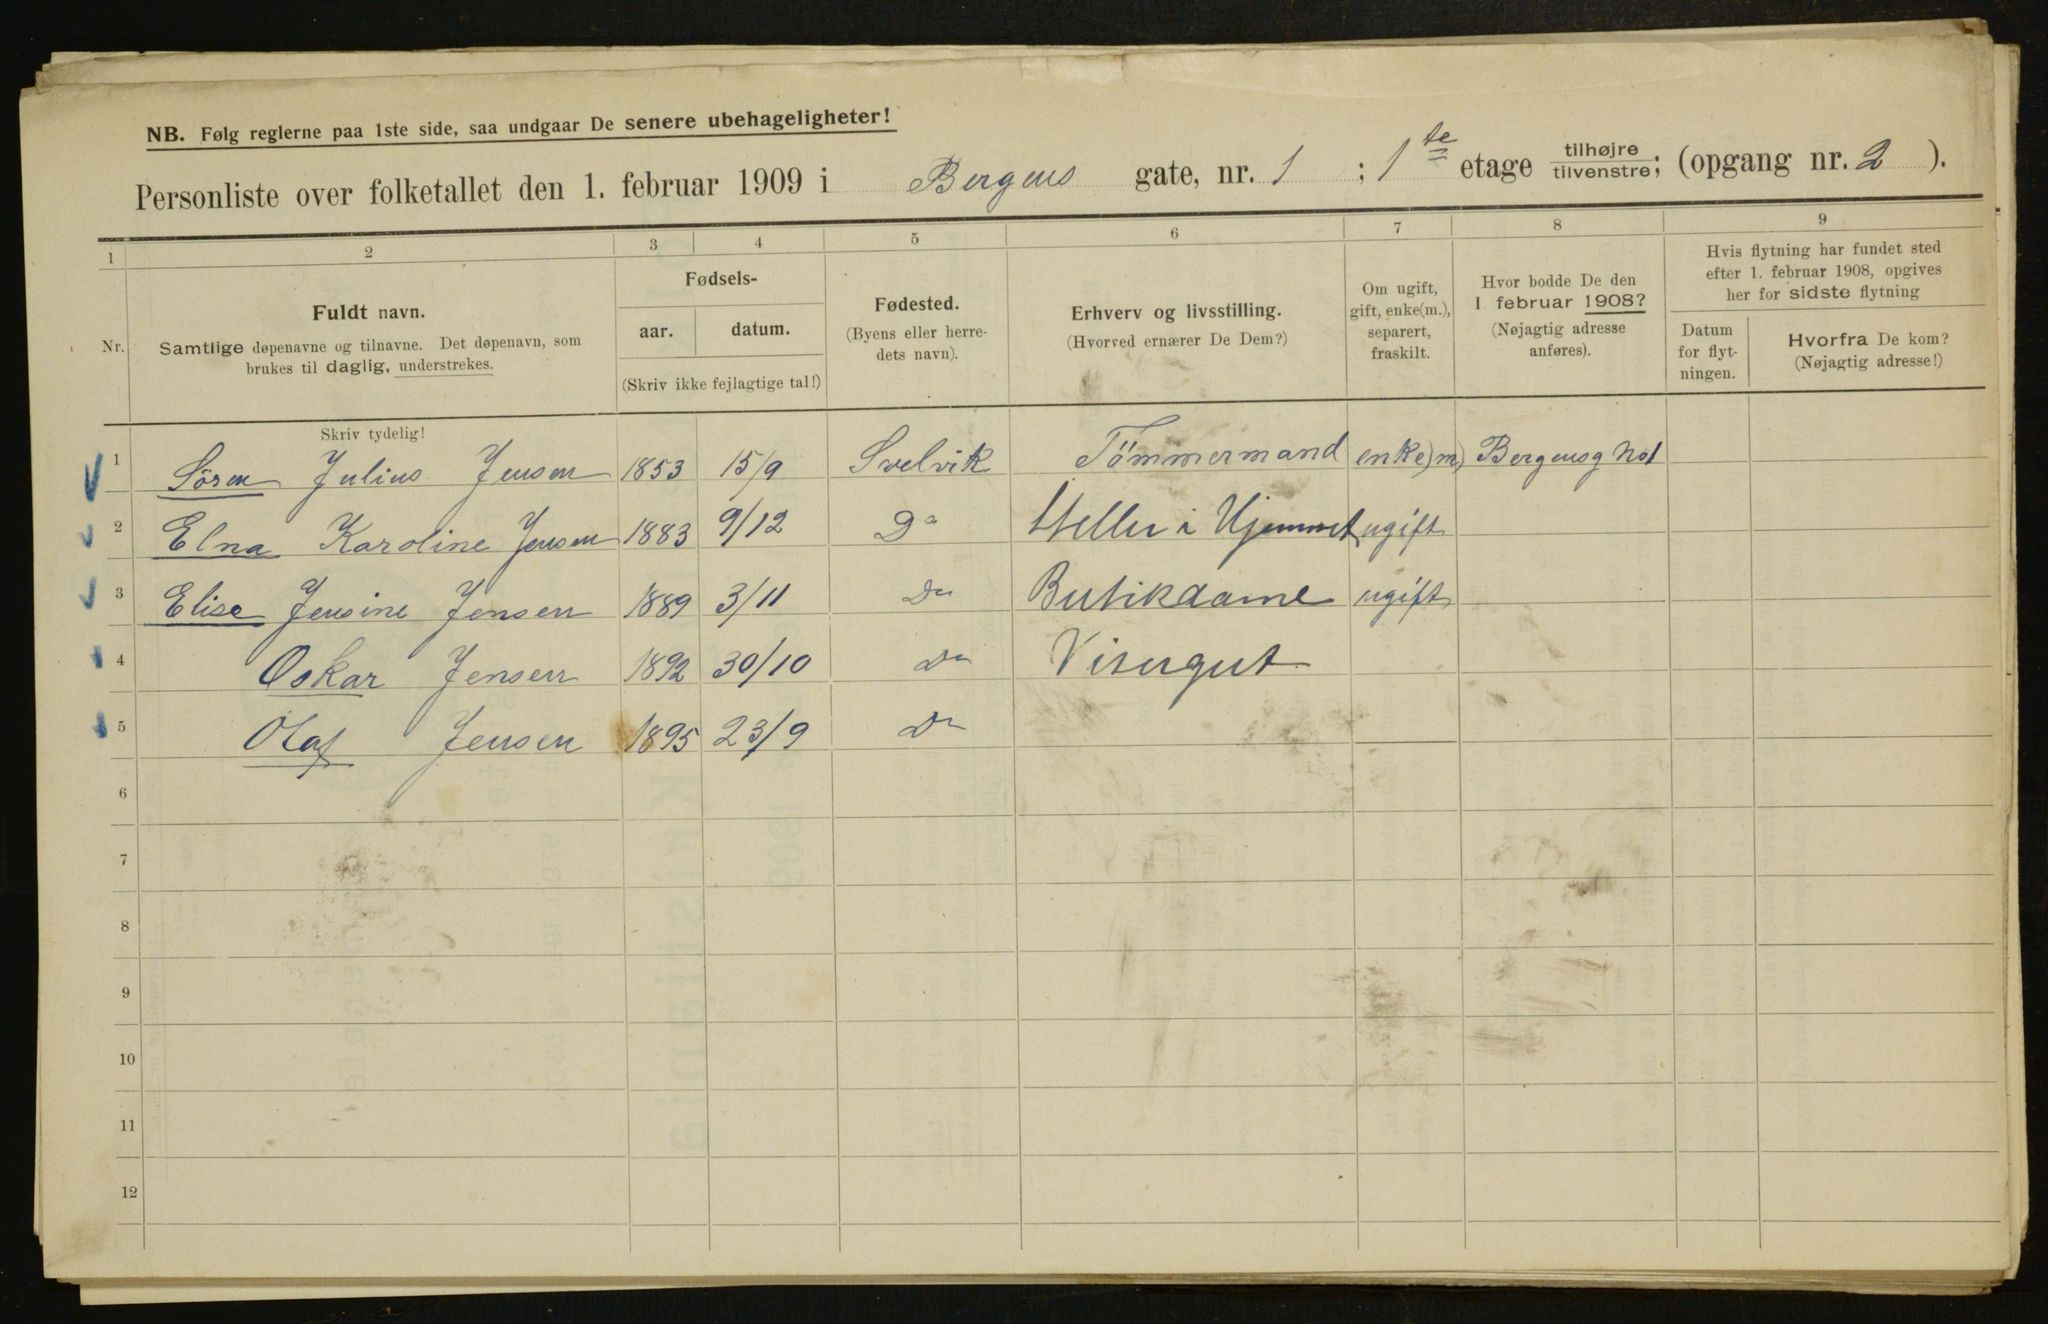 NB. Følg reglerne paa 1ste side, saa undgaar De senere ubehageligheter!
Personliste over folketallet den 1. februar 1909 i Bergens gate, nr. 1 ; 1te etage tilhøjre tilvenstre; (opgang nr. 2 ).
1 2 3 4 5 6 7 8 9
Nr.
Fuldt navn.
Samtlige døpenavne og tilnavne. Det døpenavn, som
brukes til daglig, understrekes.
Fødsels-
aar. datum.
(Skriv ikke fejlagtige tal!)
Fødested.
(Byens eller herre-
dets navn).
Erhverv og livsstilling.
(Hvorved ernærer De Dem?)
Om ugift,
gift, enke(m.),
separert,
fraskilt.
Hvor bodde De den
1. februar 1908?
(Nøjagtig adresse
anføres).
Hvis flytning har fundet sted
efter 1. februar 1908, opgives
her for sidste flytning
Datum
for flyt-
ningen.
Hvorfra De kom?
(Nøjagtig adresse!)
Skriv tydelig!
1 Sören Julius Jensen 1853 15/9 Svelvik Tömmermand enke)m) Bergensg No 1
2 Elna Karoline Jensen 1883 9/12 Do Steller i Hjemmet ugift
3 Elise Jensine Jensen 1889 3/11 Do Butikdame ugift
4 Oskar Jensen 1892 30/10 Do Visergut
5 Olaf Jensen 1895 23/9 Do
6
7
8
9
10
11
12